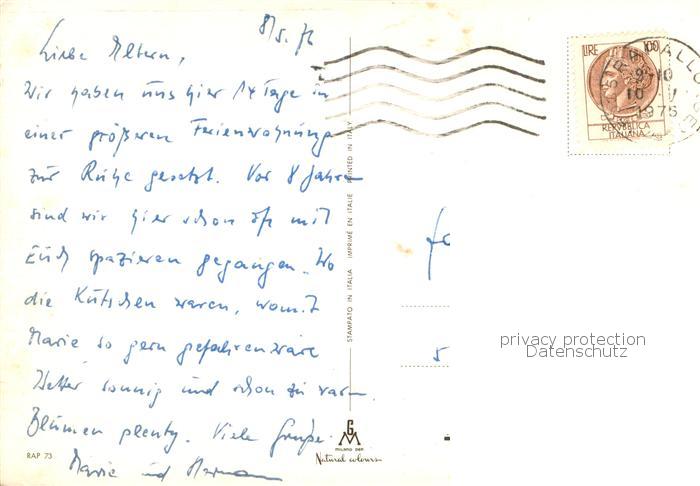 8/5.76
Liebe Eltern,
Wir haben uns hier 14 Tage in
einer größeren Ferienwohnung
zur Ruhe gesetzt. Vor 8 Jahren
sind wir hier schon oft mit
Euch spazieren gegangen. Wo
die Kutschen waren, womit
Marie so gern gefahren wäre
Wetter sonnig und schon zu warm.
Blumen plenty. Viele Grüße.
Marie und Herman
RAP 73
STAMPATO IN ITALIA IMPRIMÉ EN ITALIE PRINTED IN ITALY
G M
MILANO
Natural colours
LIRE 100
REPVBBLICA
ITALIANA
9-10
10
1975
5
privacy protection
Datenschutz